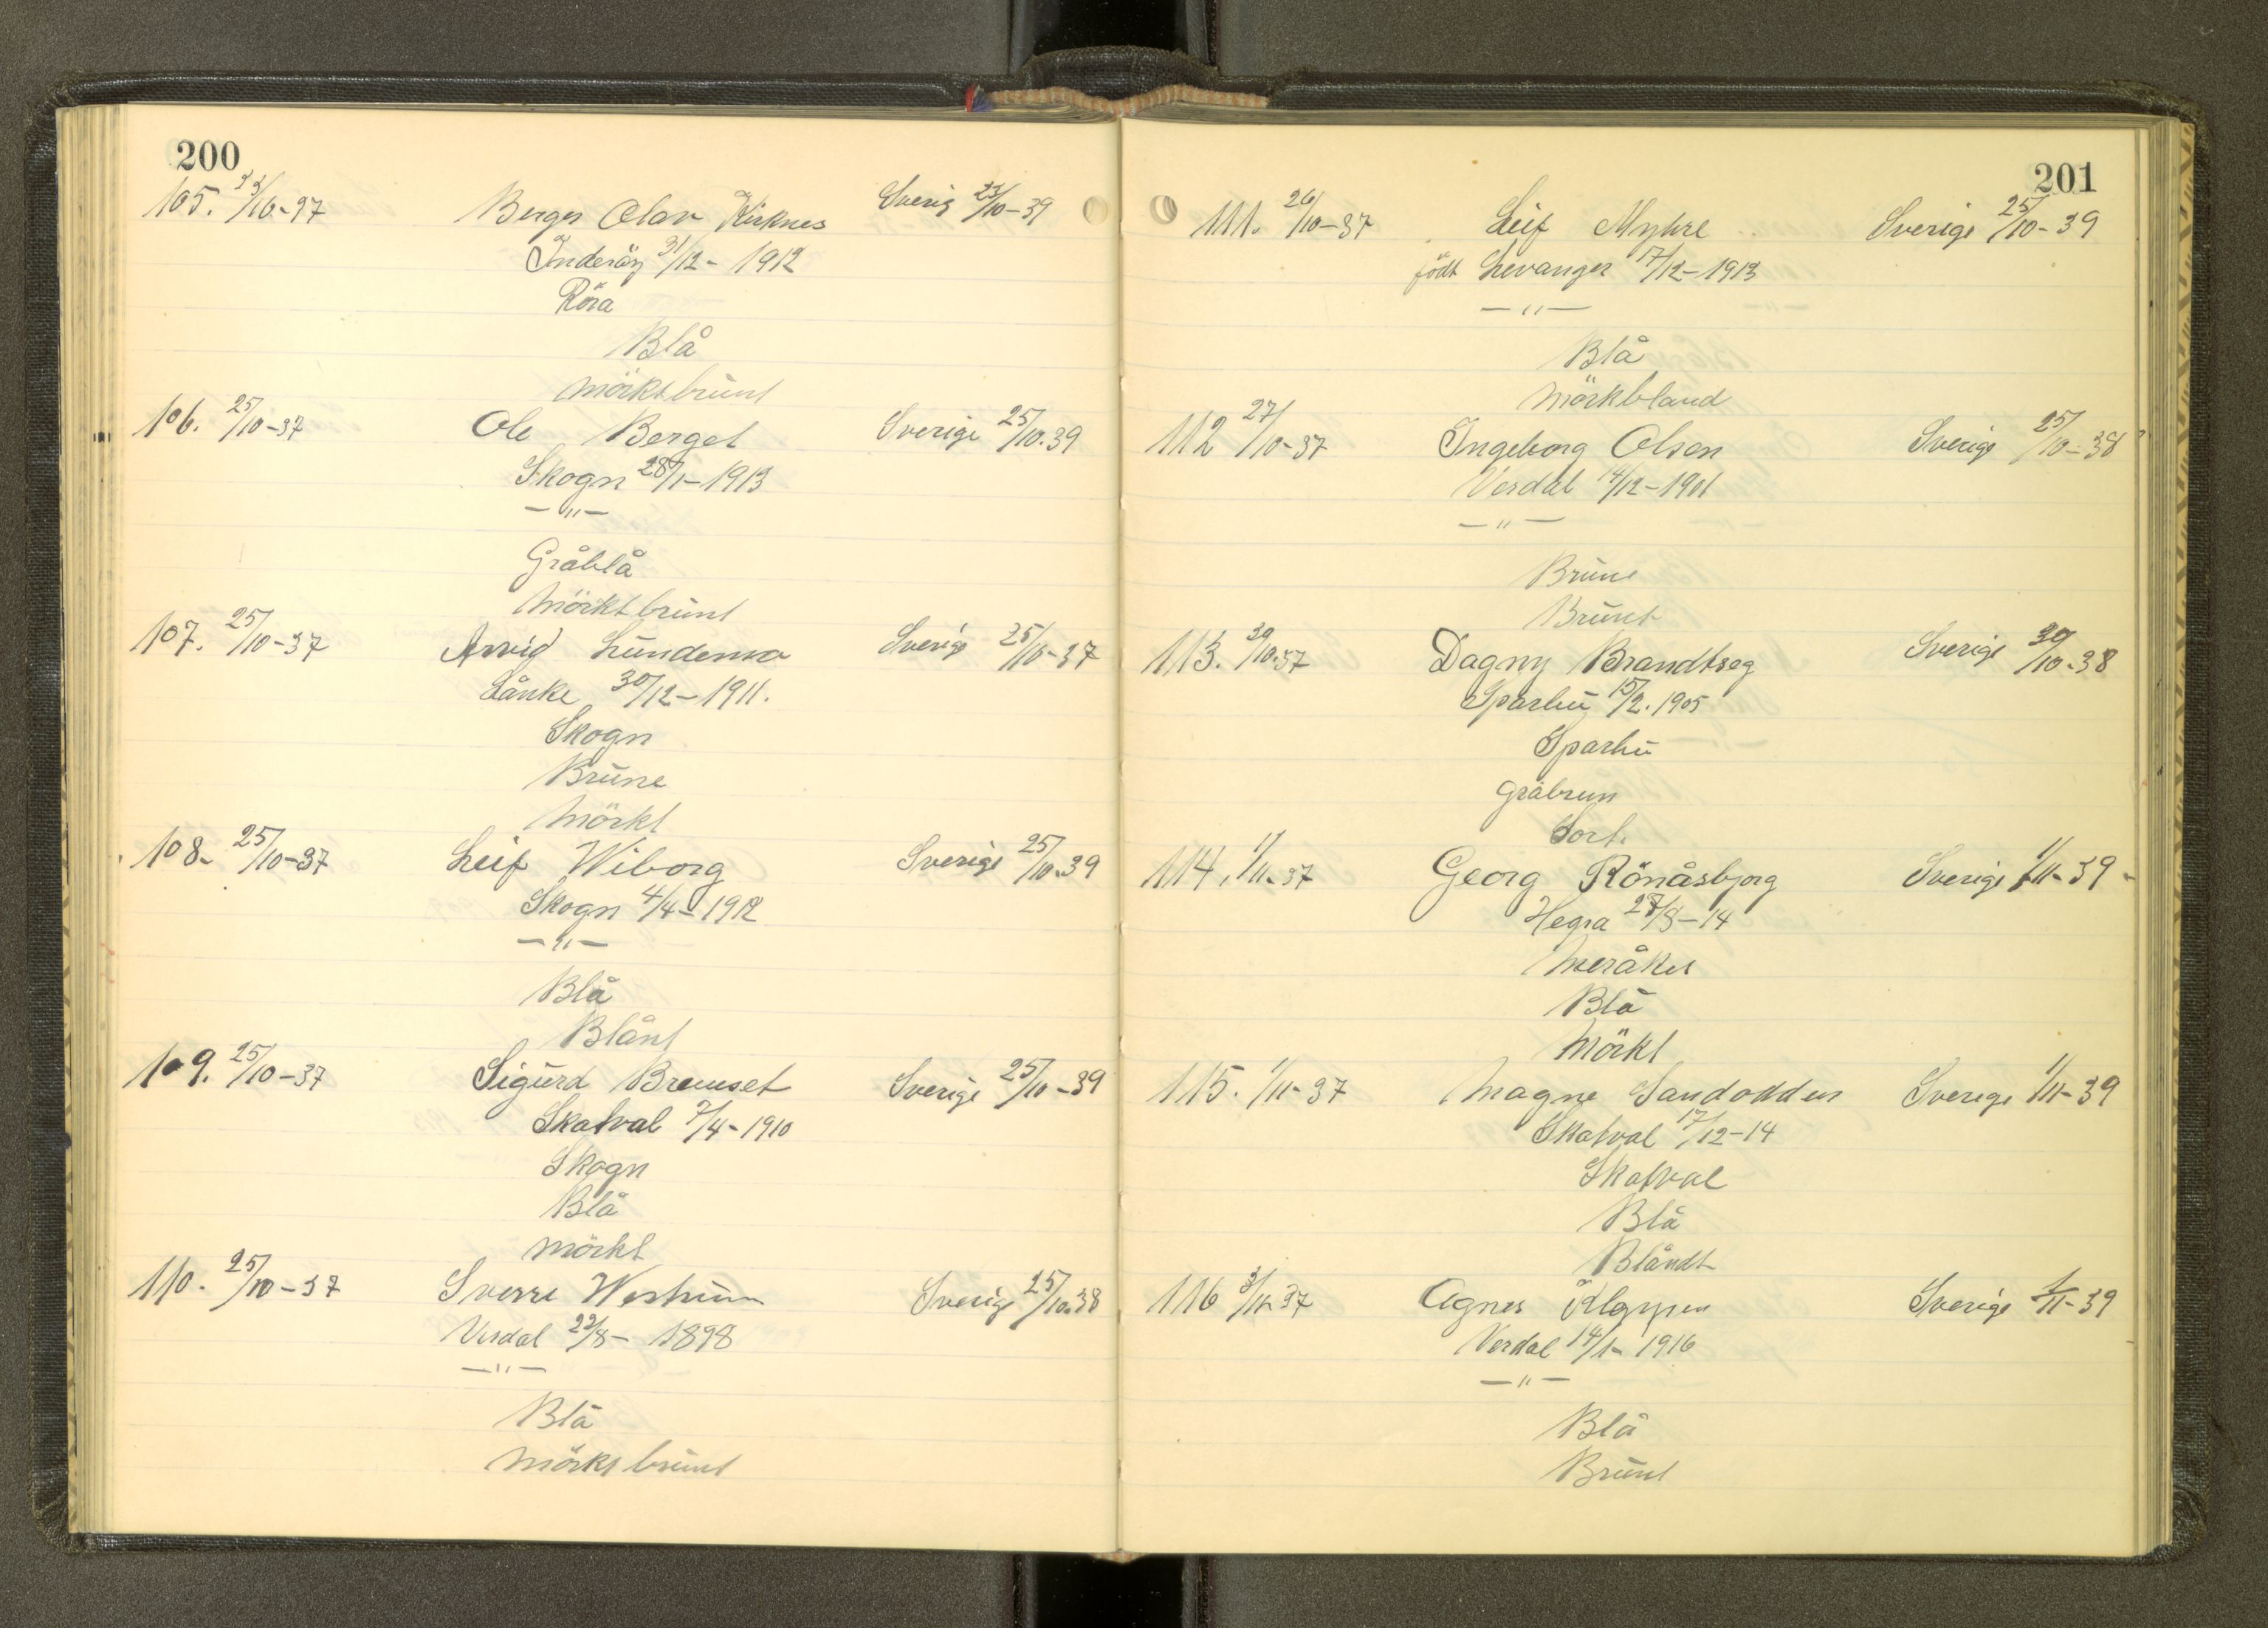 200
105. 23/10-37 Berger Olav Kirknes Sverig 23/10-39
Inderöy 31/12- 1912
Röra
Blå
mörktbrunt
106. 25/10-37 Ole Berget Sverige 25/10.39
Skogn 28/1-1913
-"-
Gråblå
Mörktbrunt
107. 25/10-37 Arvid Lundemo Sverige 25/10-37
Lånke 30/12-1911.
Skogn
Brune
Mörkt
108. 25/10-37 Leif Wiborg Sverige 25/10-39
Skogn 4/4-1912
-"-
Blå
Blånt
109. 25/10-37 Sigurd Bremset Sverige 25/10-39
Skatval 7/4-1910
Skogn
Blå
mörkt
110. 25/10-37 Sverre Westrum Sverige 25/10.38
Verdal 22/8- 1898
-"-
Blå
Mörkt brunt
201
111. 26/10-37 Leif Myhre Sverige 25/10-39
födt Levanger 17/12-1913
-"-
Blå
Mörkbland
112 27/10-37 Ingeborg Olsen Sverige 25/10-38
Verdal 14/12-1901
-"-
Brune
Brunt
113. 30/10.37 Dagny Brandtseg Sverige 30/10.38
Sparbu 15/2.1905
Sparbu
gråbrun
Sort.
114. 1/11-37 Georg Rönåsbjorg Sverige 1/11-39-
Hegra 28/8-14
Meråker
Blå
Mörkt
115. 1/11-37 Magne Sandodden Sverige 1/11-39
Skatval 17/12-14
Skatval
Blå
Blåndt
116 3/11-37 Agnes Kleppen Sverige 1/11-39
Verdal 14/1-1916
-"-
Blå
Brunt